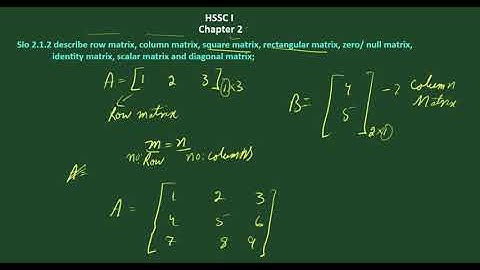 HSSC I
Chapter 2
Slo 2.1.2 describe row matrix, column matrix, square matrix, rectangular matrix, zero/ null matrix,
identity matrix, scalar matrix and diagonal matrix;
A = [1 2 3] 1×3
Row matrix
B = [4 5] 2×1 → Column Matrix
m = n
no: Row no: columns
A =
A = [1 2 3
4 5 6
7 8 9]